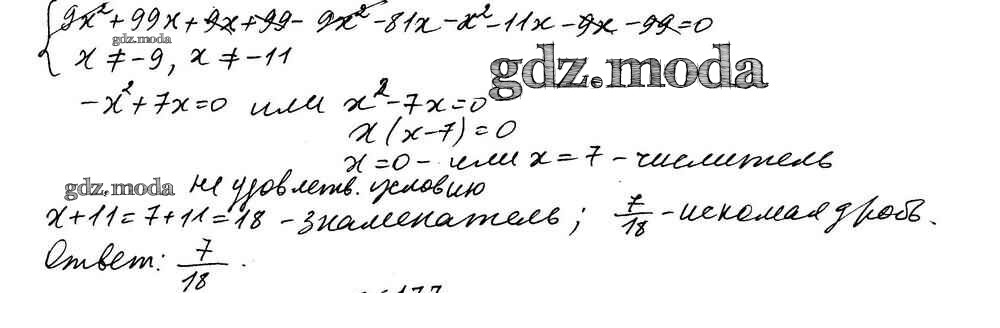 {9x² + 99x + 9x + 99 - 9x² - 81x - x² - 11x - 9x - 99 = 0
gdz.moda
x ≠ -9, x ≠ -11
gdz.moda
-x² + 7x = 0 или x² - 7x = 0
x(x-7) = 0
x = 0 - или x = 7 - числитель
gdz.moda не удовлетв. условию
x + 11 = 7 + 11 = 18 - знаменатель; 7/18 - искомая дробь.
Ответ: 7/18.